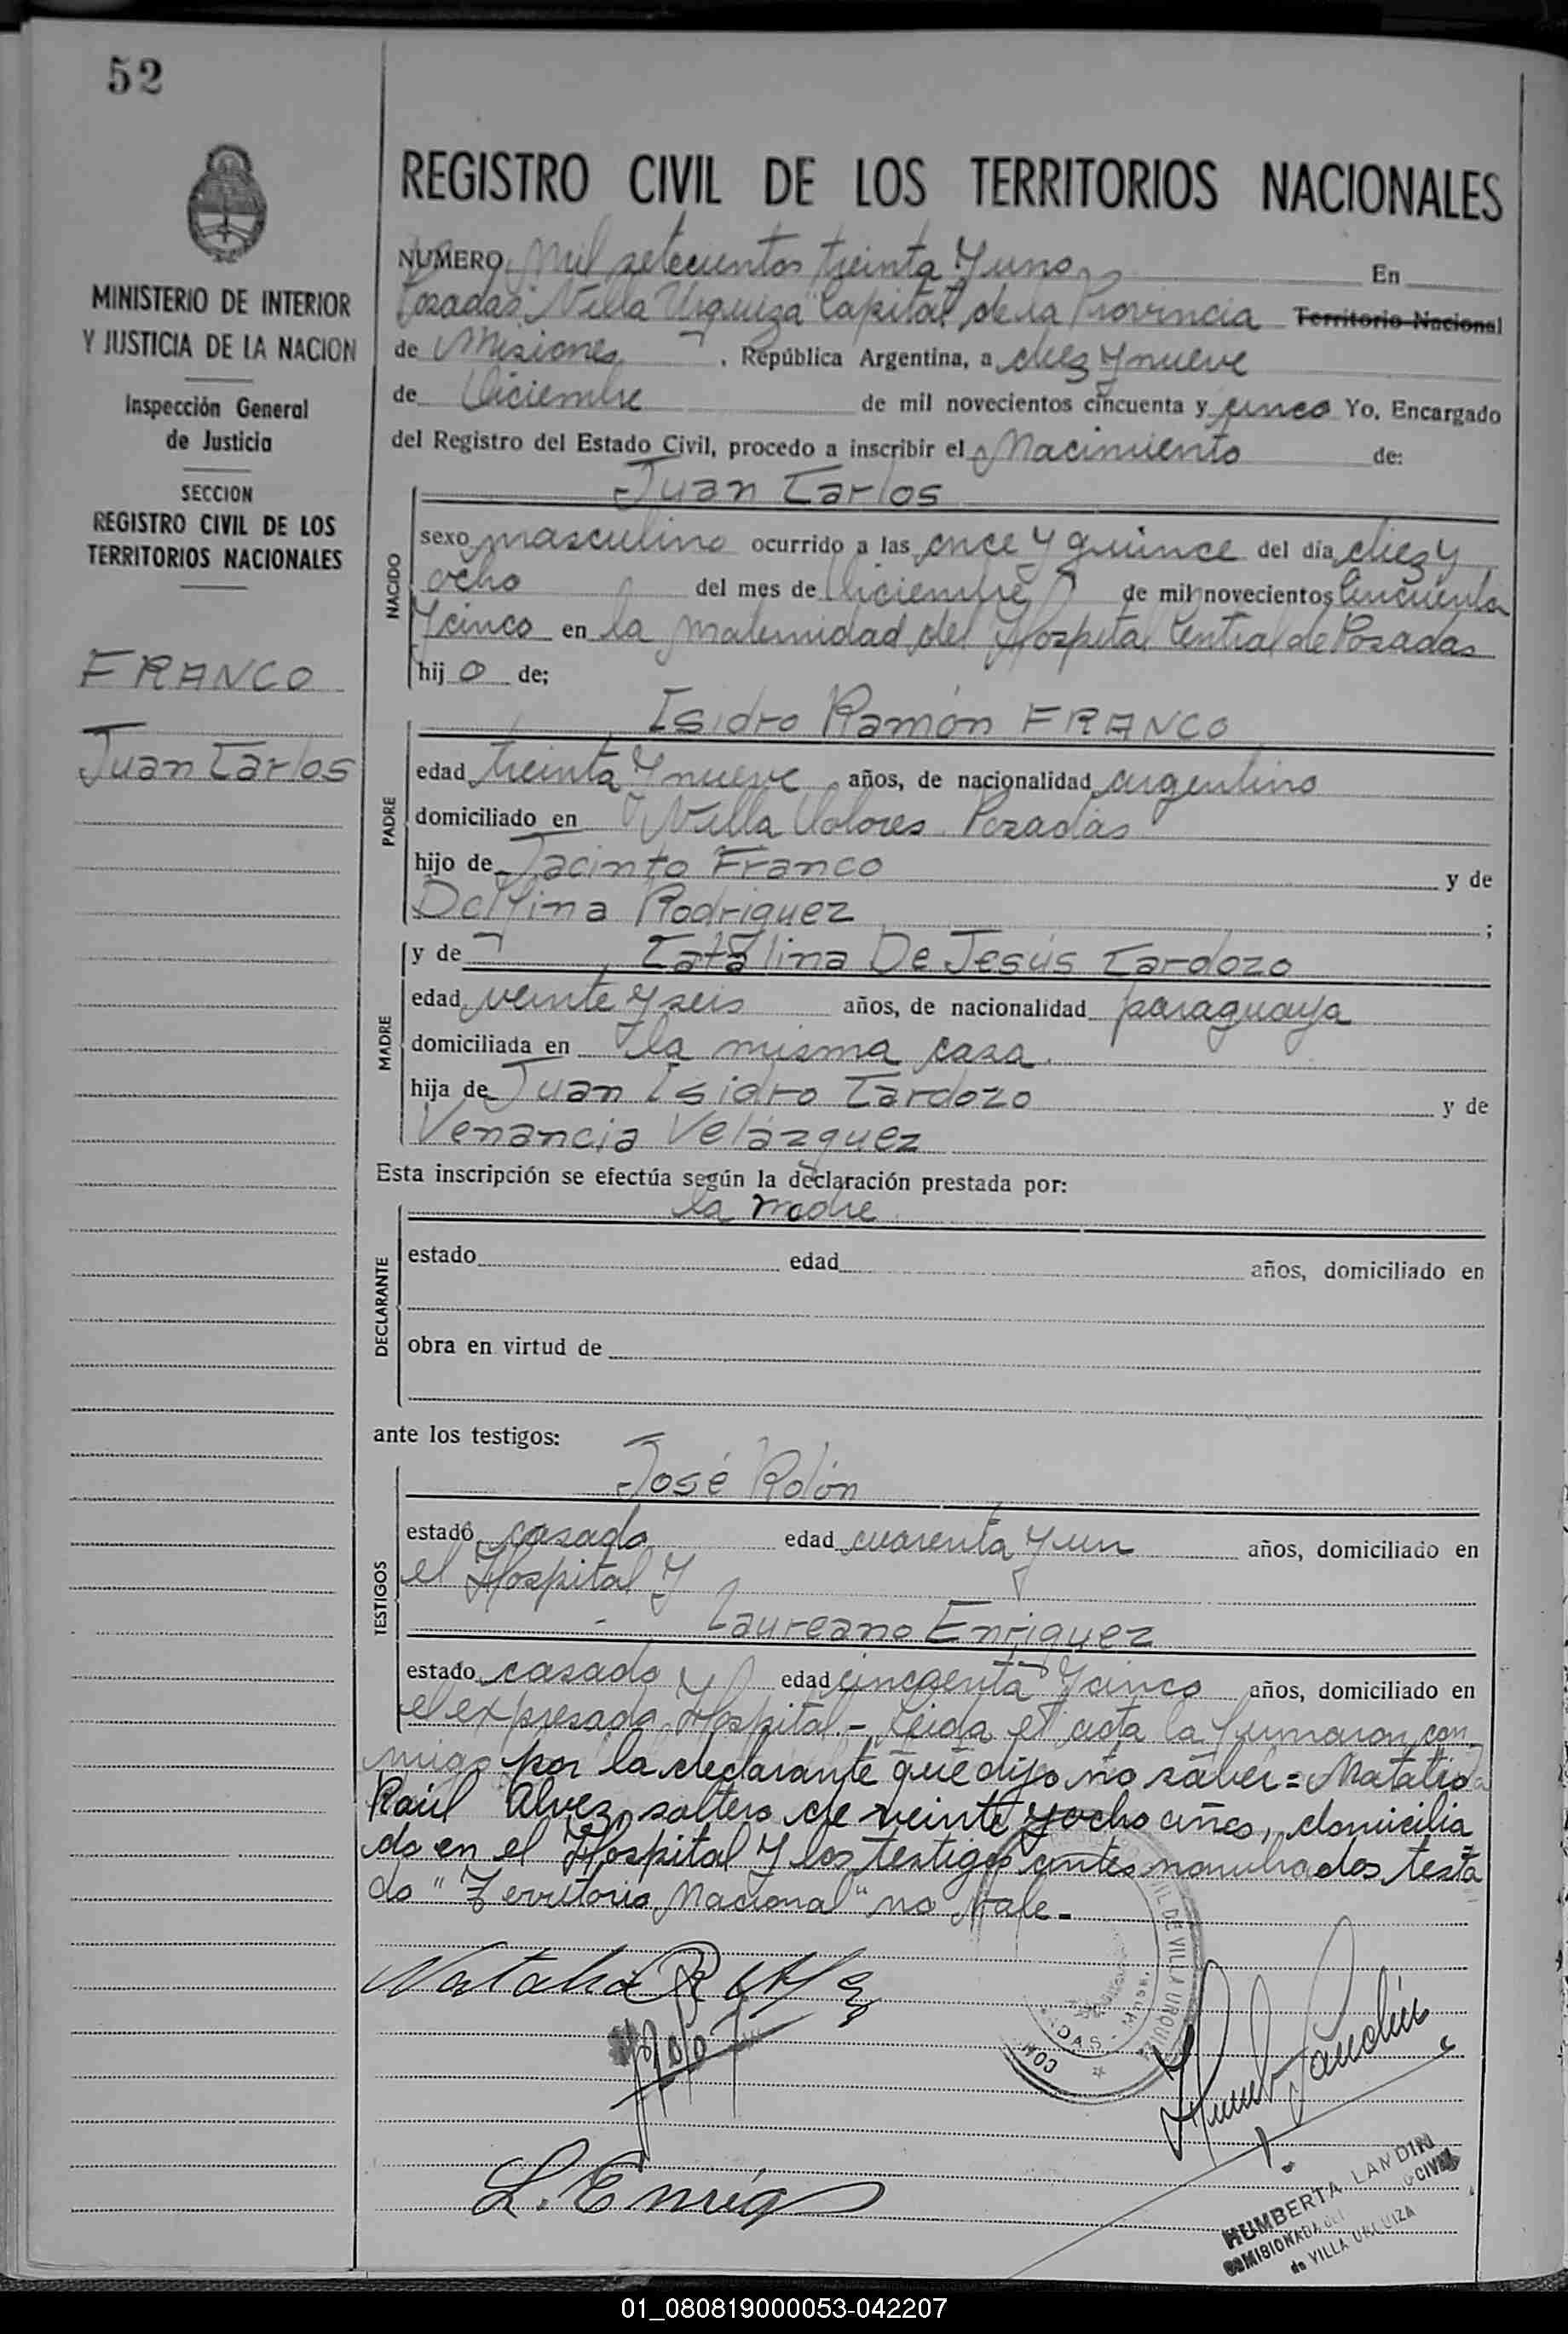 52
MINISTERIO DE INTERIOR
Y JUSTICIA DE LA NACION
Inspección General
de Justicia
SECCION
REGISTRO CIVIL DE LOS
TERRITORIOS NACIONALES
FRANCO
Juan Carlos
REGISTRO CIVIL DE LOS TERRITORIOS NACIONALES
NUMERO Mil setecientos treinta y uno En
Posadas "Villa Urquiza" Capital de la Provincia Territorio Nacional
de Misiones, República Argentina, a diez y nueve
de Diciembre de mil novecientos cincuenta y cinco Yo, Encargado
del Registro del Estado Civil, procedo a inscribir el Nacimiento de:
NACIDO
Juan Carlos
sexo masculino ocurrido a las once y quince del día diez y
ocho del mes de Diciembre de mil novecientos Cincuenta
y cinco en la maternidad del Hospital Central de Posadas
hij o de;
PADRE
Isidro Ramón FRANCO
edad treinta y nueve años, de nacionalidad argentino
domiciliado en Villa Dolores Posadas
hijo de Jacinto Franco y de
Delfina Rodriguez ;
MADRE
y de Catalina De Jesús Cardozo
edad veinte y seis años, de nacionalidad paraguaya
domiciliada en la misma casa.
hija de Juan Isidro Cardozo y de
Venancia Velázquez
Esta inscripción se efectúa según la declaración prestada por:
la madre
DECLARANTE
estado edad años, domiciliado en
obra en virtud de
ante los testigos:
TESTIGOS
José Rolón
estado casado edad cuarenta y un años, domiciliado en
el Hospital y
Laureano Enriquez
estado casado edad cincuenta y cinco años, domiciliado en
el expresado Hospital.- Leida el acta la firmaron con
migo por la declarante que dijo no saber = Natalio
Raúl Alvez, soltero de veinte y ocho años, domicilia
do en el Hospital y los testigos antes nombrados, testa
do "Territorio Nacional" no vale.-
L. Enriq
IL DE VILLA URQUIZA
HUMBERTA LANDIN
COMISIONADA DEL CIVIL
de VILLA URQUIZA
01_080819000053-042207